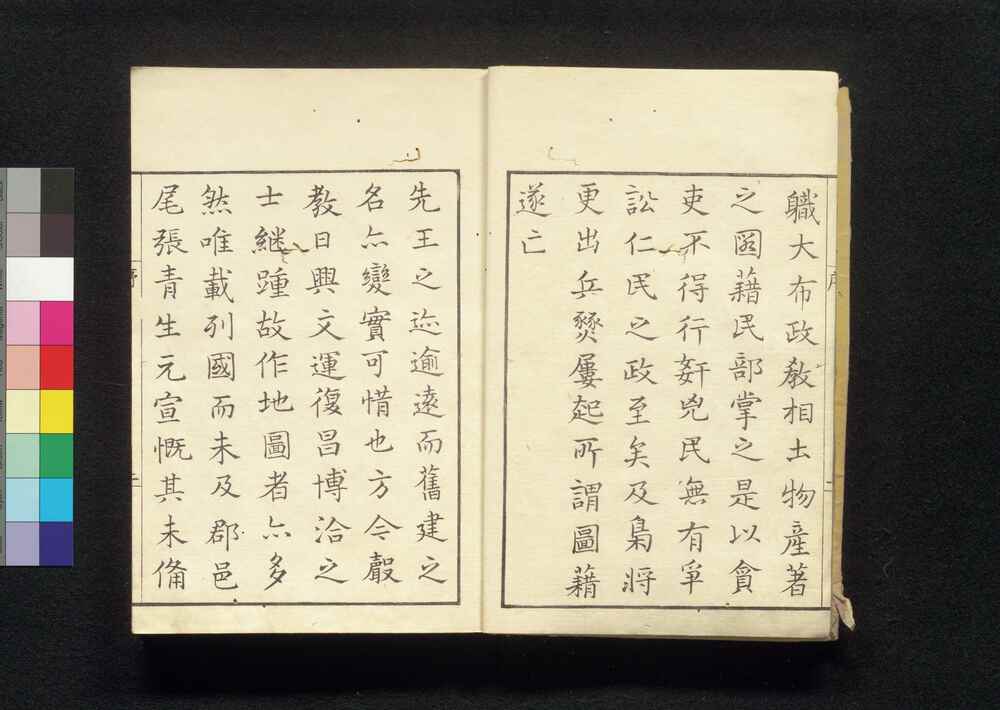 職大布政教相土物産著
之圖藉民部掌之是以貪
吏不得行奸兇民無有爭
訟仁民之政至矣及梟將
更出兵燹屢起所謂圖藉
遂亡
先王之迹逾遠而舊建之
名亦變實可惜也方今聲
教日興文運復昌博洽之
士継踵故作地圖者亦多
然唯載列國而未及郡邑
尾張青生元宣慨其未俻